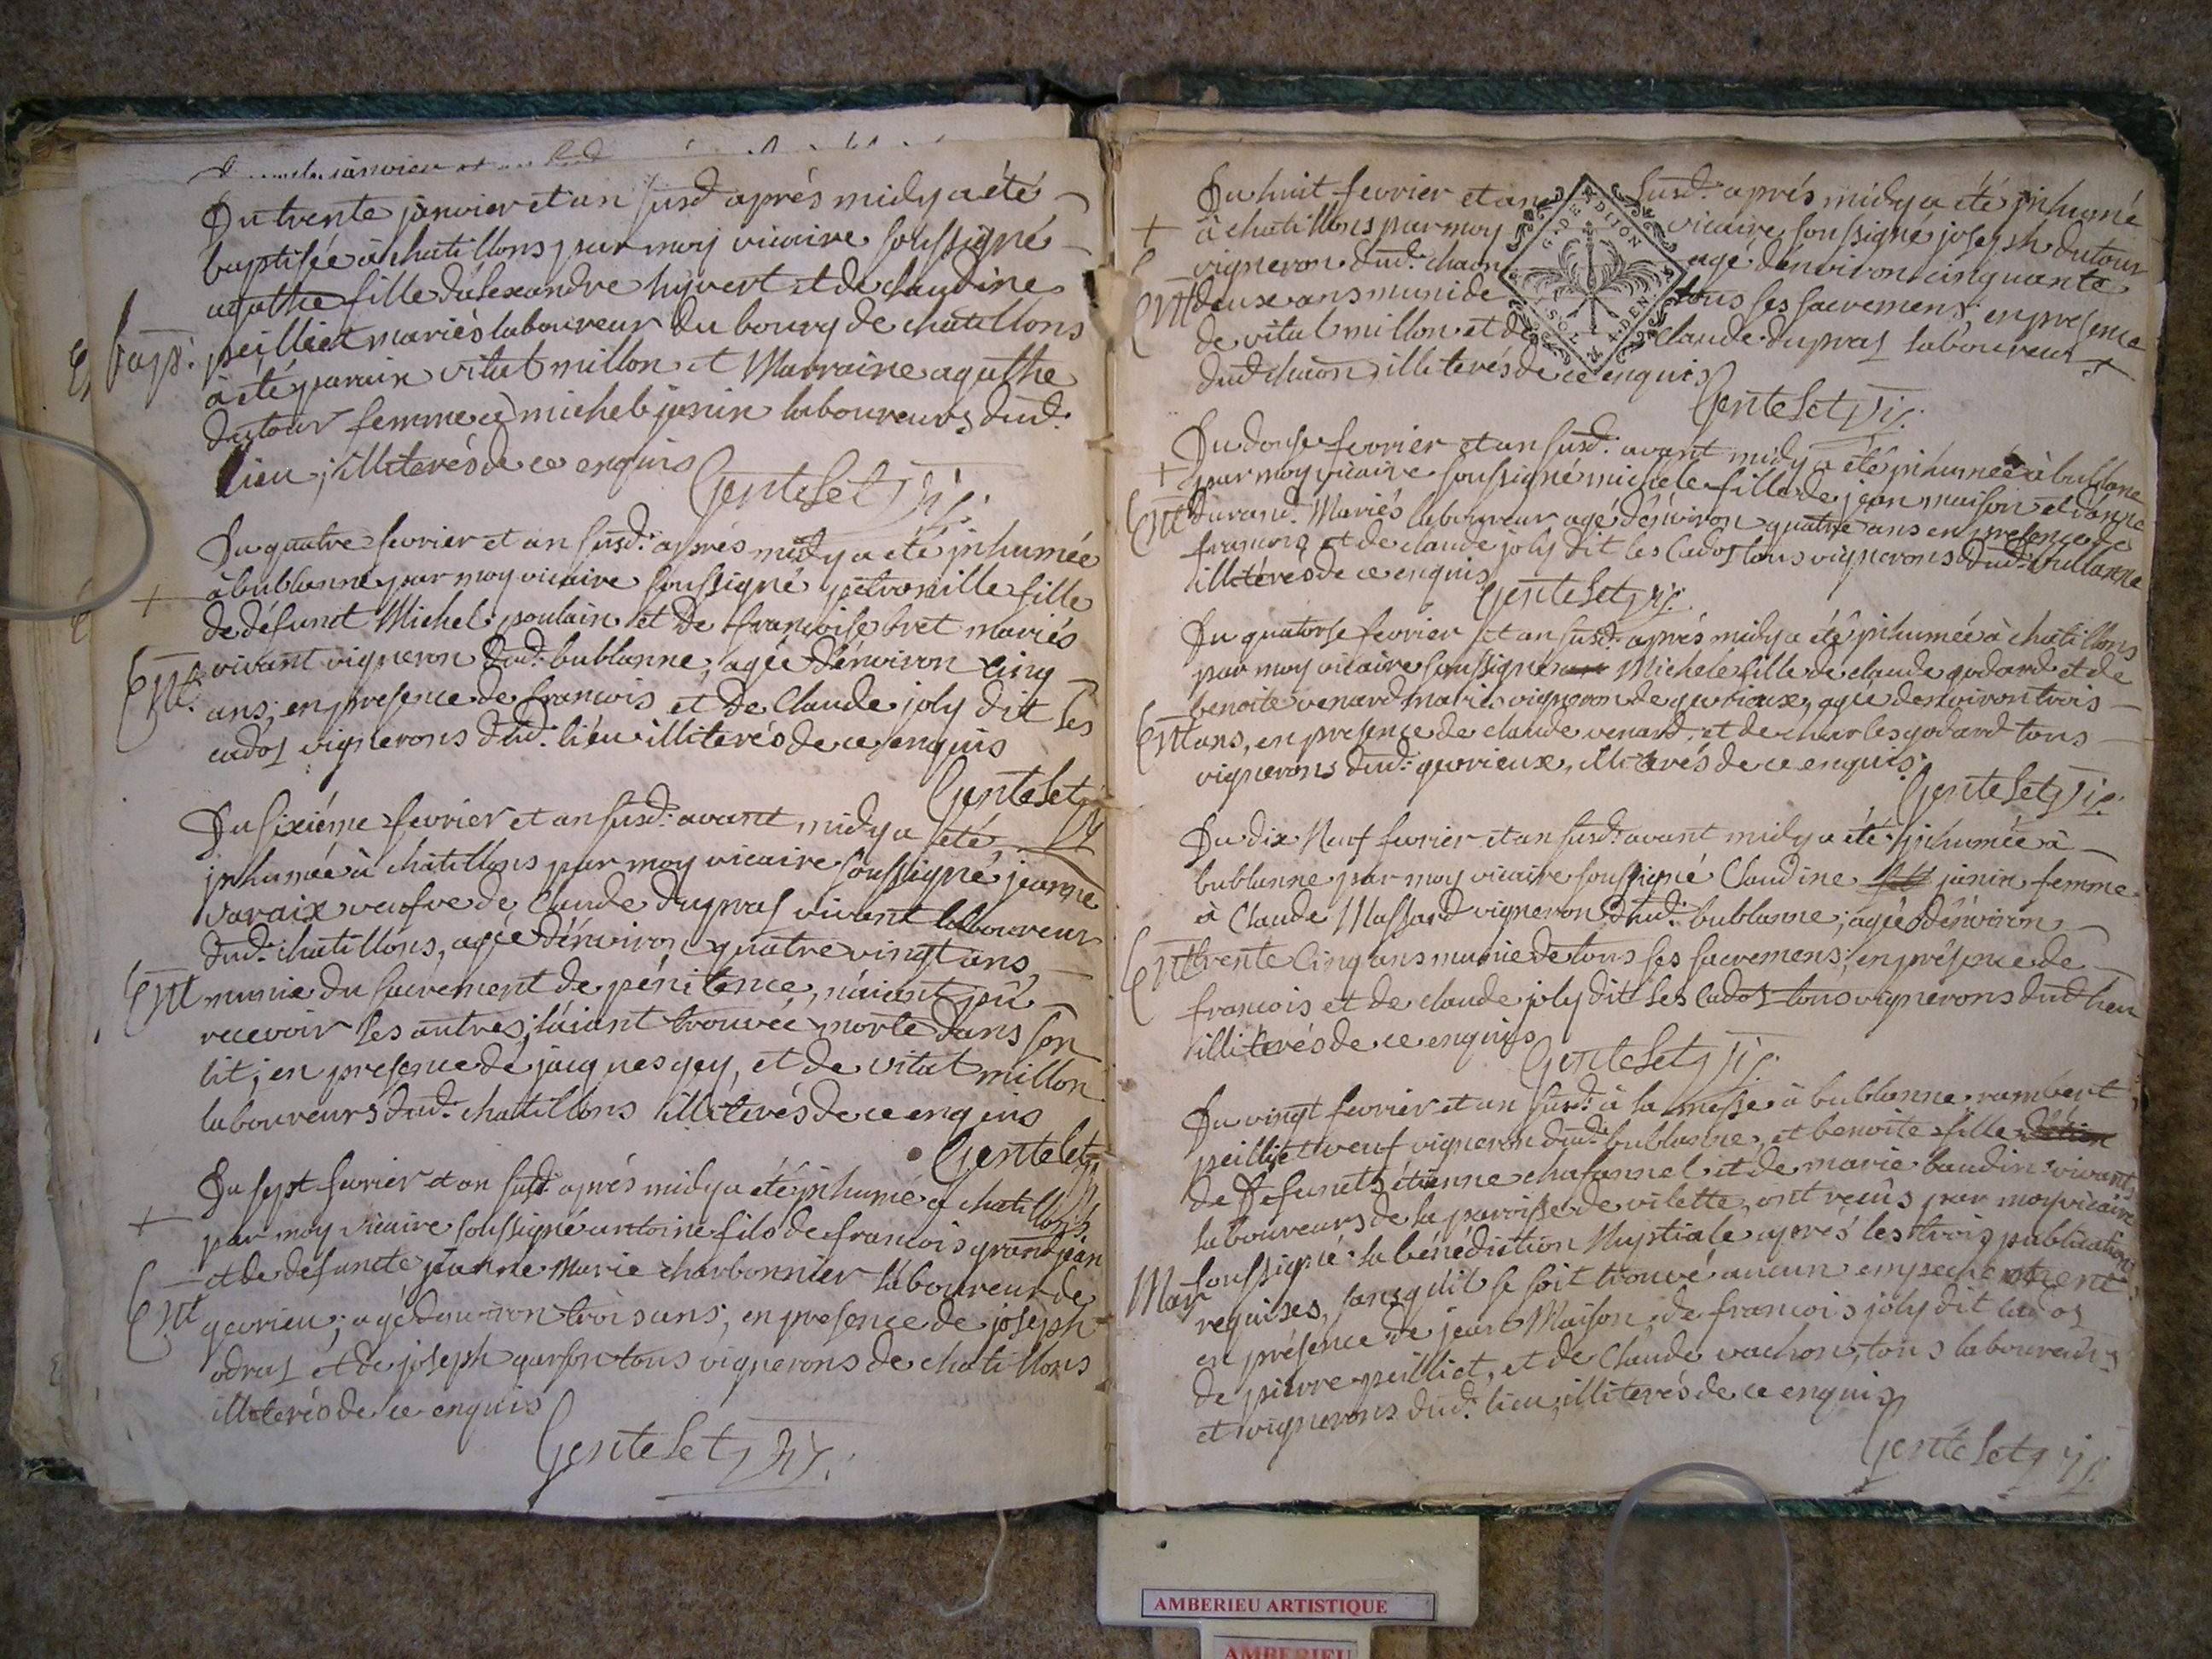 janvier et
Du trente janvier et an susd. après midy a été
baptisée à chatillons par moy vicaire soussigné
agathe fille d'alexandre hyvert et de claudine
bapt: peilliet mariés laboureur du bourg de chatillons
à été parain vital millon et Marraine agathe
dutour femme à michel janin laboureurs dud.
lieu, illiterés de ce enquis
Gentelet Vic.
Du quatre fevrier et an susd. après midy a été inhumée
à bublanne par moy vicaire soussigné petronille fille
de défunct Michel poulain et de francoise bret mariés
Ent: vivant vigneron dud. bublanne, agée d'environ cinq
ans; en presence de francois et de Claude joly dit les
cados vignerons dud. lieu illiterés de ce enquis
Gentelet
Du sixiéme fevrier et an susd. avant midy a été
inhumée à chatillons par moy vicaire soussigné jeanne
varaix veufve de Claude dupras vivant laboureur
dud. chatillons, agée d'environ quatre vingt ans,
Ent munie du sacrement de pénitence, n'aiant pû
recevoir les autres, l'aiant trouvée morte dans son
lit; en presence de jacques gey, et de vital millon
laboureurs dud. chatillons illiterés de ce enquis
Gentelet
Du sept fevrier et an susd. après midy a été inhumé à chatillons
par moy vicaire soussigné antoine fils de francois grandjean
et de defuncte jeanne Marie charbonnier laboureur de
Ent gevrieu; agé d'environ trois ans; en presence de joseph
odras et de joseph garson tous vignerons de chatillons
illiterés de ce enquis
Gentelet Vic.
Du huit fevrier et an susd. après midy a été inhumé
à chatillons par moy vicaire soussigné joseph dutour
vigneron dud. chaon agé d'environ cinquante
Ent deux ans muni de tous ses sacremens: en presence
de vital millon et de Claude dupras laboureurs
dud. chaon, illiterés de ce enquis
Gentelet Vic.
G. DE DITION
SOL DEN
Du douse fevrier et an susd. avant midy a été inhumée à bublane
par moy vicaire soussigné michele fille de jean maison et d'anne
Ent durand. Mariés laboureur agé d'environ quatre ans en presence de
francois et de claude joly dit les Cados tous vignerons dud. bublanne
illiterés de ce enquis
Gentelet Vic.
Du quatorse fevrier et an susd. après midy a été inhumée à chatillons
par moy vicaire soussigné Michele fille de claude godard et de
benoite venard mariés vigneron de gevrieux, agée d'environ trois
Ent ans, en presence de claude venard. et de charles godard tous
vignerons dud. gevrieux, illiterés de ce enquis.
Gentelet Vic.
Du dix Neuf fevrier et an susd. avant midy a été inhumée à
bublanne par moy vicaire soussigné Claudine janin femme
à Claude Massard vigneron dud. bublanne; agée d'environ
Ent trente Cinq ans munie de tous ses sacremens, en présence de
francois et de claude joly dit les Cados tous vignerons dud. lieu
illiterés de ce enquis
Gentelet Vic.
Du vingt fevrier et an susd. à la messe à bublanne rambert
peilliet veuf vigneron dud. bublanne, et benoite fille
de Defuncts étienne chafannel et de marie baudin vivants
laboureurs de la paroisse de vilette, ont reçûs par moy vicaire
soussigné la bénédiction Nuptiale aprés les trois publications
Mar requises, sans qu'il se soit trouvé aucun empechement.
en présence de jean Maison, de francois joly dit Cados
de pierre peilliet, et de Claude vachon, tous laboureurs
et vignerons dud. lieu, illiterés de ce enquis
Gentelet Vic.
AMBERIEU ARTISTIQUE
AMBERIEU